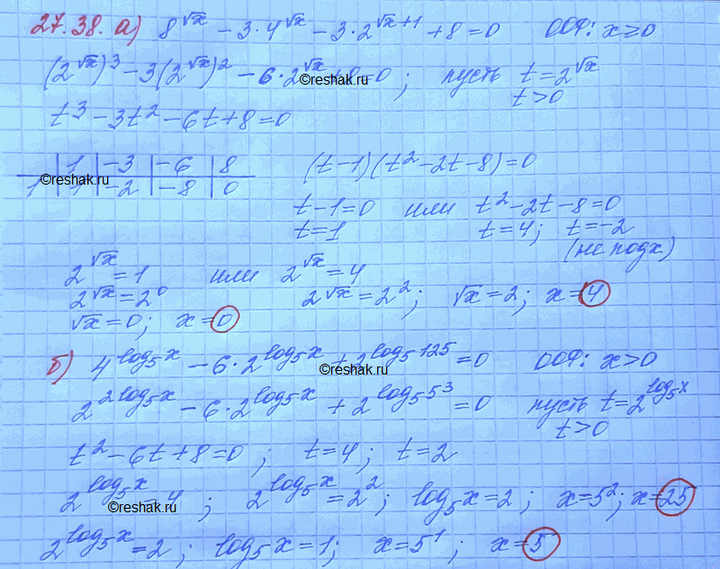 27.38. а) 8^{√x} − 3·4^{√x} − 3·2^{√x+1} + 8 = 0 ООФ: x ≥ 0
(2^{√x})^3 − 3(2^{√x})^2 − 6·2^{√x} + 8 = 0; пусть t = 2^{√x}
©reshak.ru
t > 0
t^3 − 3t^2 − 6t + 8 = 0
1 | −3 | −6 | 8 (t−1)(t^2−2t−8) = 0
1 | 1 | −2 | −8 | 0
©reshak.ru
t−1=0 или t^2−2t−8=0
t=1 t=4; t=−2
(не подх)
2^{√x} = 1 или 2^{√x} = 4
2^{√x} = 2^0 2^{√x} = 2^2; √x = 2; x = 4
√x = 0; x = 0
б) 4^{log_5 x} − 6·2^{log_5 x} + 2^{log_5 125} = 0 ООФ: x > 0
©reshak.ru
2^{2log_5 x} − 6·2^{log_5 x} + 2^{log_5 5^3} = 0 пусть t = 2^{log_5 x}
t > 0
t^2 − 6t + 8 = 0; t = 4; t = 2
2^{log_5 x} = 4; 2^{log_5 x} = 2^2; log_5 x = 2; x = 5^2; x = 25
©reshak.ru
2^{log_5 x} = 2; log_5 x = 1; x = 5^1; x = 5